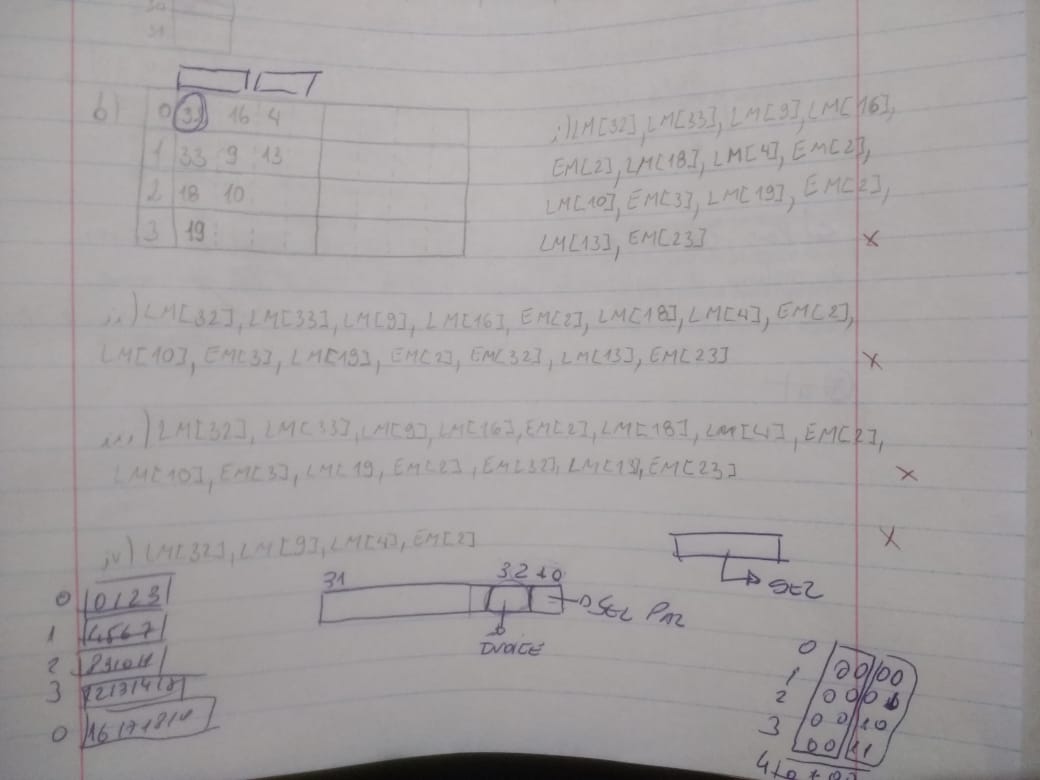 31
b)
0 32 16 4
1 33 9 13
2 18 10
3 19
i) LM[32], LM[33], LM[9], LM[16],
EM[2], LM[18], LM[4], EM[2],
LM[10], EM[3], LM[19], EM[2],
LM[13], EM[23]
ii) LM[32], LM[33], LM[9], LM[16], EM[2], LM[18], LM[4], EM[2],
LM[10], EM[3], LM[19], EM[2], EM[32], LM[13], EM[23]
iii) LM[32], LM[33], LM[9], LM[16], EM[2], LM[18], LM[4], EM[2],
LM[10], EM[3], LM[19, EM[2], EM[32], LM[13], EM[23]
iv) LM[32], LM[9], LM[4], EM[2]
SEL
31 3 2 1 0
SEL PAL
INDICE
0 0 1 2 3
1 4 5 6 7
2 8 9 10 11
3
0 16 17 18 19
0
1 00 00
2 00 01
3 00 10
00 11
4